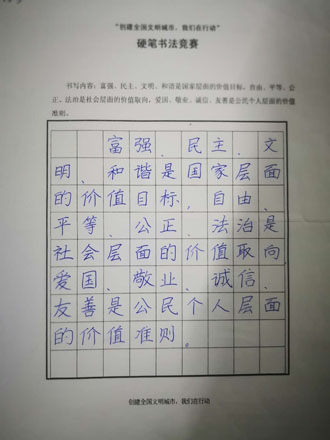 “创建全国文明城市，我们在行动”
硬笔书法竞赛
书写内容：富强、民主、文明、和谐是国家层面的价值目标，自由、平等、公
正、法治是社会层面的价值取向，爱国、敬业、诚信、友善是公民个人层面的价值
准则。
富强、民主、文
明、和谐是国家层面
的价值目标，自由、
平等、公正、法治是
社会层面的价值取向
爱国、敬业、诚信、
友善是公民个人层面
的价值准则。
创建全国文明城市，我们在行动